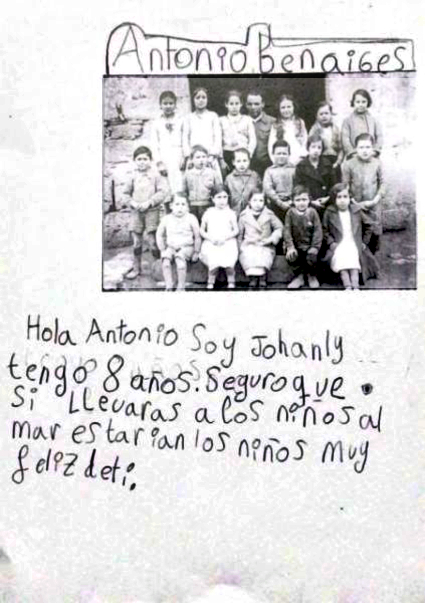 Antonio Benaiges
Hola Antonio Soy Johanly
tengo 8 años. Seguro que
si LLevaras a los niños al
mar estarian los niños muy
feliz de ti.